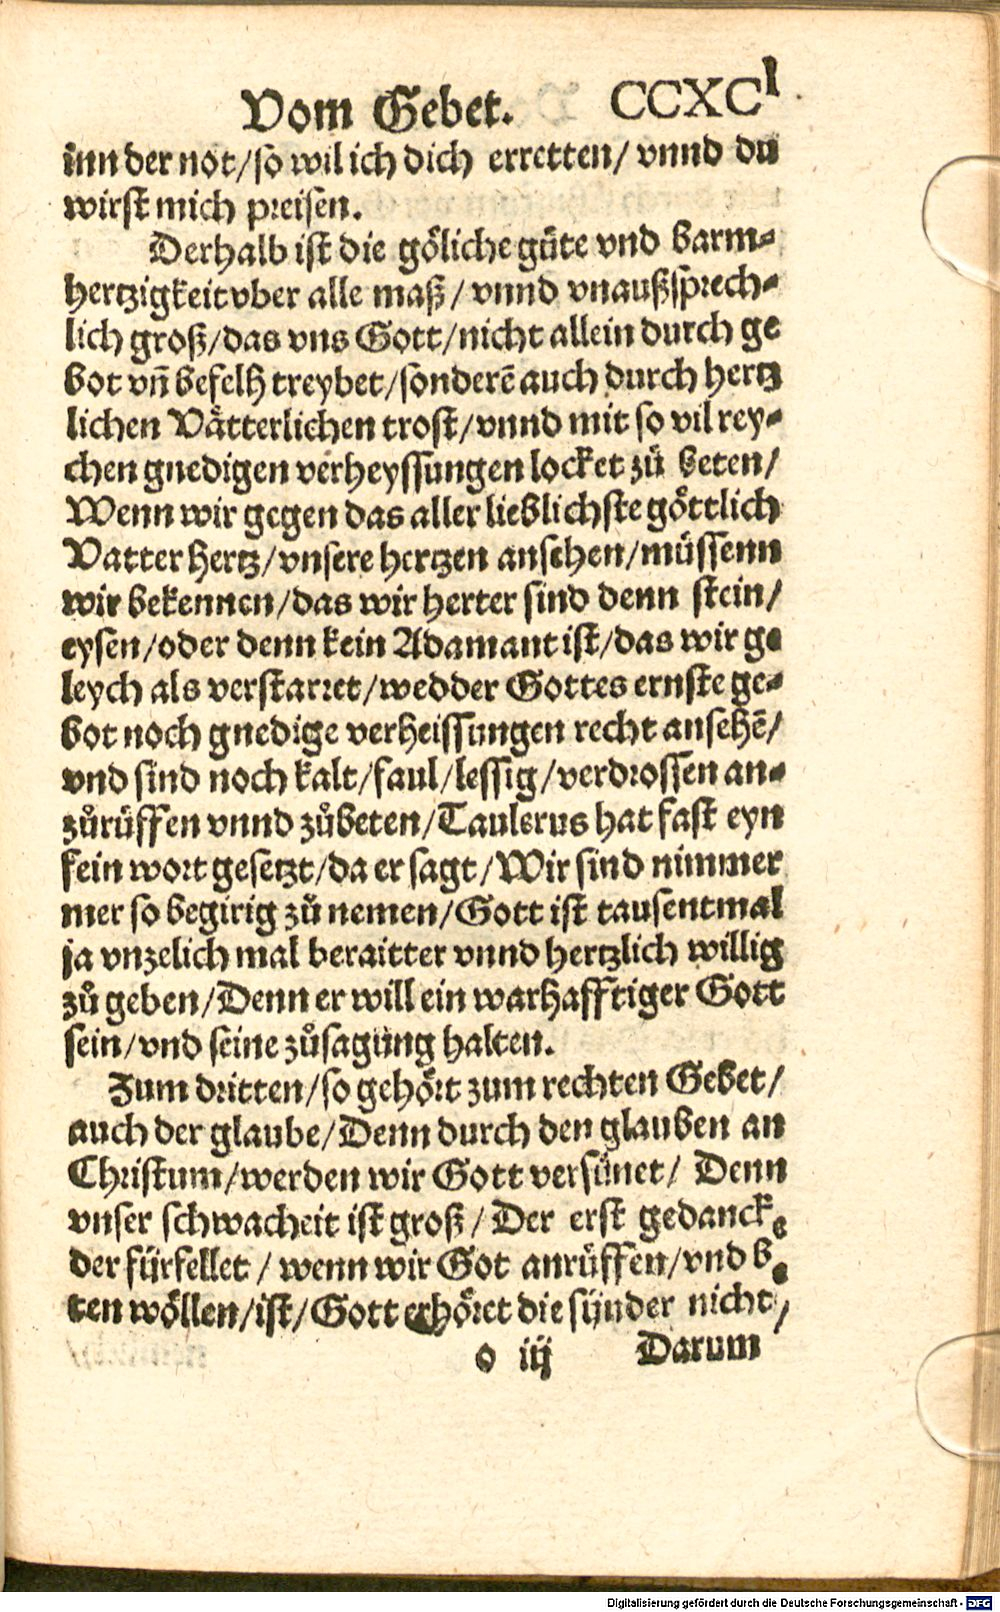 Vom Gebet. CCXCI
inn der not/so wil ich dich erretten/ vnnd du
wirst mich preisen.
Derhalb ist die göliche güte vnd barm-
hertzigkeit vber alle maß/ vnnd vnaußsprech-
lich groß/das vns Gott/nicht allein durch ge
bot vñ befelh treybet/sonderẽ auch durch hertz
lichen Vätterlichen trost/vnnd mit so vil rey-
chen gnedigen verheyssungen locket zů beten/
Wenn wir gegen das aller lieblichste göttlich
Vatter hertz/vnsere hertzen ansehen/müssenn
wir bekennen/das wir herter sind denn stein/
eysen/oder denn kein Adamant ist/das wir ge
leych als verstarret/wedder Gottes ernste ge-
bot noch gnedige verheissungen recht ansehẽ/
vnd sind noch kalt/faul/lessig/verdrossen an-
zůrüffen vnnd zůbeten/Taulerus hat fast eyn
fein wort gesetzt/da er sagt/Wir sind nimmer
mer so begirig zů nemen/Gott ist tausentmal
ja vnzelich mal beraitter vnnd hertzlich willig
zů geben/Denn er will ein warhafftiger Gott
sein/vnd seine zůsagung halten.
Zum dritten/so gehört zum rechten Gebet/
auch der glaube/Denn durch den glauben an
Christum/werden wir Gott versünet/ Denn
vnser schwacheit ist groß/ Der erst gedancke
der fürfellet/ wenn wir Got anrüffen/vnd be
ten wöllen/ist/Gott erhöret die sünder nicht/
o iij Darum
Digitalisierung gefördert durch die Deutsche Forschungsgemeinschaft - DFG